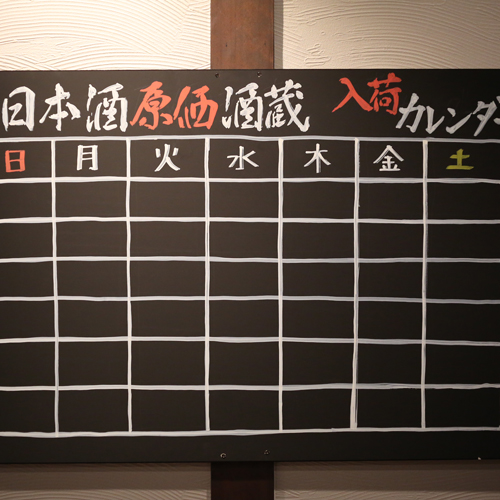 日本酒原価酒蔵 入荷カレンダ
日 月 火 水 木 金 土